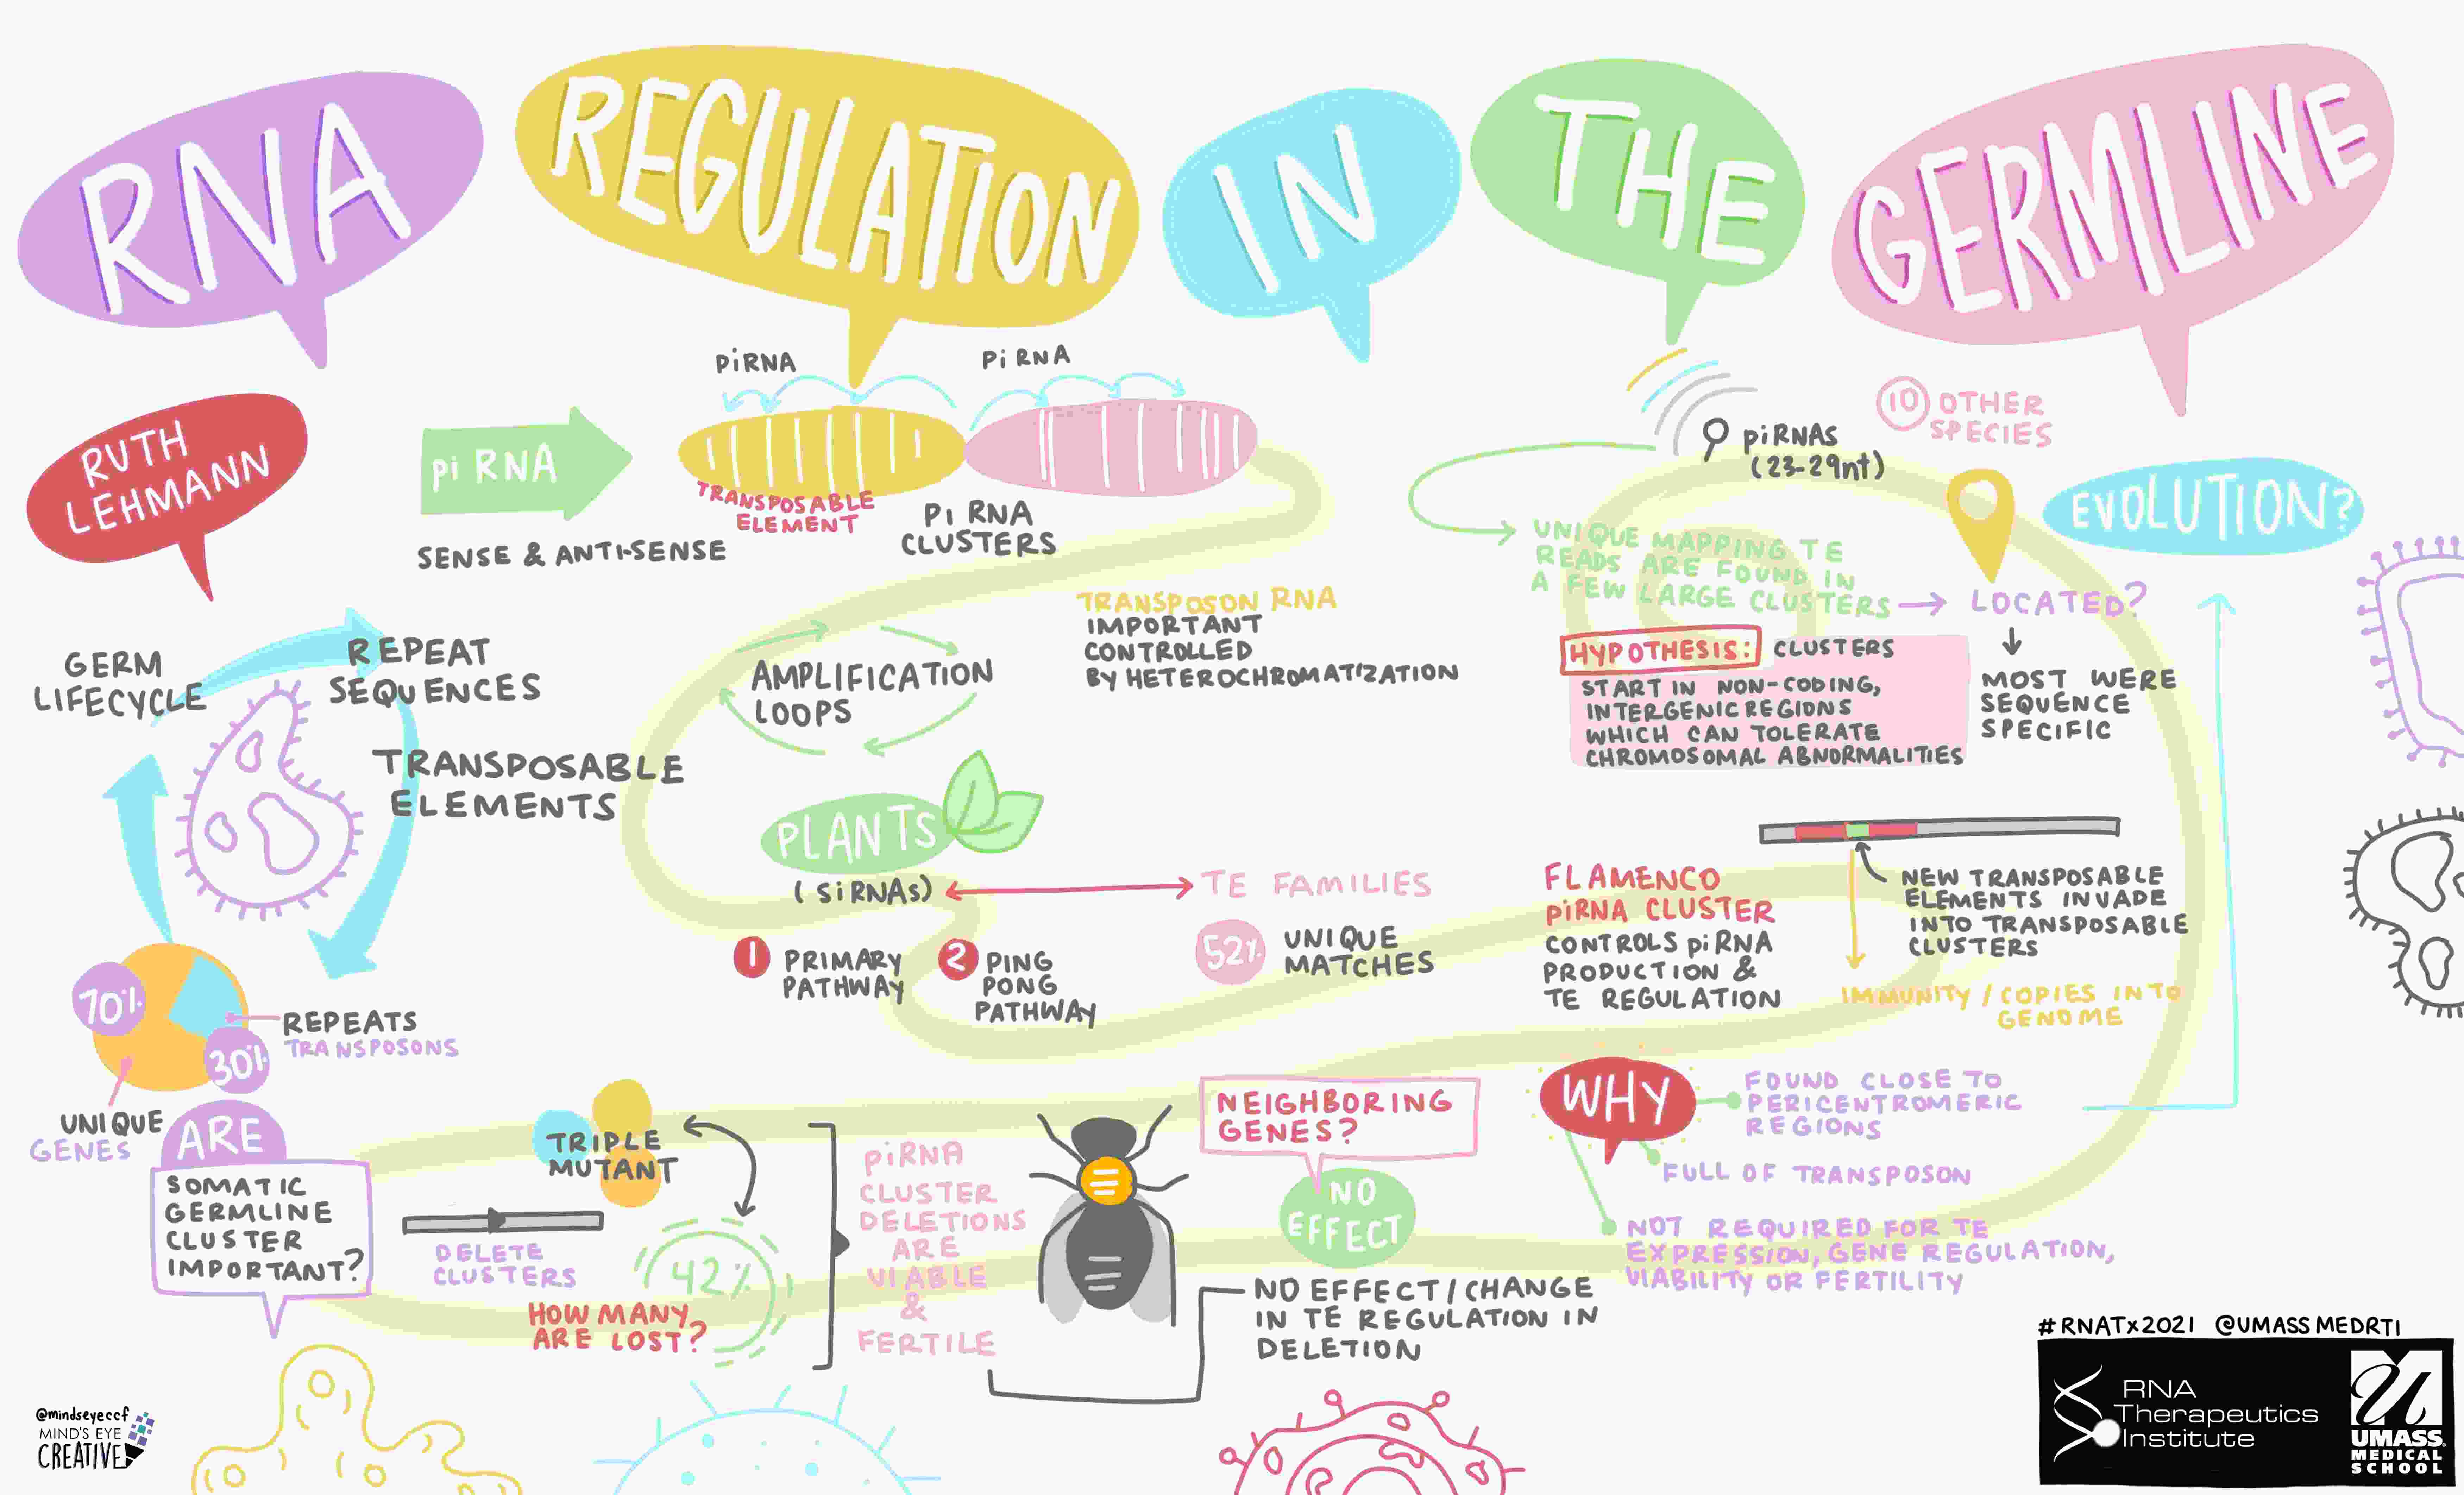 RNA
REGULATION
IN
THE
GERMLINE
RUTH
LEHMANN
piRNA
piRNA
pi RNA
TRANSPOSABLE
ELEMENT
Pi RNA
CLUSTERS
SENSE & ANTI-SENSE
GERM
LIFECYCLE
REPEAT
SEQUENCES
TRANSPOSABLE
ELEMENTS
70%
30%
REPEATS
TRANSPOSONS
UNIQUE
GENES
AMPLIFICATION
LOOPS
TRANSPOSON RNA
IMPORTANT
CONTROLLED
BY HETEROCHROMATIZATION
PLANTS
(SiRNAs)
TE FAMILIES
1 PRIMARY
PATHWAY
2 PING
PONG
PATHWAY
52% UNIQUE
MATCHES
piRNAS
(23-29nt)
10 OTHER
SPECIES
EVOLUTION?
UNIQUE MAPPING TE
READS ARE FOUND IN
A FEW LARGE CLUSTERS
LOCATED?
MOST WERE
SEQUENCE
SPECIFIC
HYPOTHESIS: CLUSTERS
START IN NON-CODING,
INTERGENIC REGIONS
WHICH CAN TOLERATE
CHROMOSOMAL ABNORMALITIES
FLAMENCO
PiRNA CLUSTER
CONTROLS piRNA
PRODUCTION &
TE REGULATION
NEW TRANSPOSABLE
ELEMENTS INVADE
INTO TRANSPOSABLE
CLUSTERS
IMMUNITY / COPIES INTO
GENOME
ARE
SOMATIC
GERMLINE
CLUSTER
IMPORTANT?
TRIPLE
MUTANT
DELETE
CLUSTERS
42%
HOW MANY
ARE LOST?
PiRNA
CLUSTER
DELETIONS
ARE
VIABLE
&
FERTILE
NEIGHBORING
GENES?
NO
EFFECT
NO EFFECT/CHANGE
IN TE REGULATION IN
DELETION
WHY
FOUND CLOSE TO
PERICENTROMERIC
REGIONS
FULL OF TRANSPOSON
NOT REQUIRED FOR TE
EXPRESSION, GENE REGULATION,
VIABILITY OR FERTILITY
#RNATx2021 @UMASSMEDRTI
RNA
Therapeutics
Institute
UMASS
MEDICAL
SCHOOL
@mindseyeccf
MIND'S EYE
CREATIVE